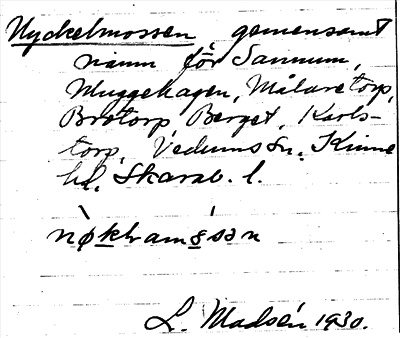 Nyckelmossen gemensamt
namn för Sannum,
Muggehagen, Målaretorp,
Brotorp Berget, Karls-
torp, Vedums sn. Kinne
hd. Skarab. l.
L. Madsén 1930.